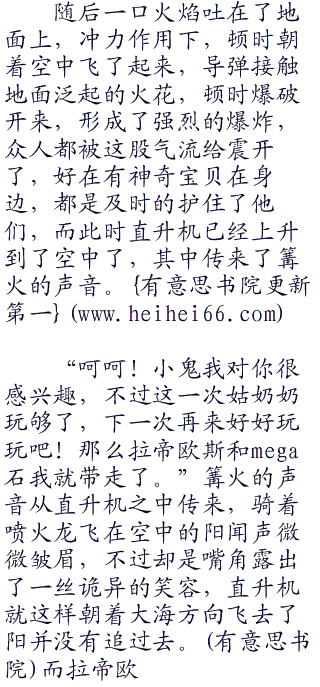 随后一口火焰吐在了地
面上，冲力作用下，顿时朝
着空中飞了起来，导弹接触
地面泛起的火花，顿时爆破
开来，形成了强烈的爆炸，
众人都被这股气流给震开
了，好在有神奇宝贝在身
边，都是及时的护住了他
们，而此时直升机已经上升
到了空中了，其中传来了篝
火的声音。{有意思书院更新
第一}(www.heihei66.com)
“呵呵！小鬼我对你很
感兴趣，不过这一次姑奶奶
玩够了，下一次再来好好玩
玩吧！那么拉帝欧斯和mega
石我就带走了。”篝火的声
音从直升机之中传来，骑着
喷火龙飞在空中的阳闻声微
微皱眉，不过却是嘴角露出
了一丝诡异的笑容，直升机
就这样朝着大海方向飞去了
阳并没有追过去。(有意思书
院)而拉帝欧